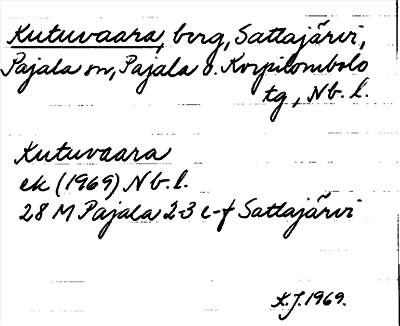 Kutuvaara, berg, Sattajärvi,
Pajala sn, Pajala o. Korpilombolo
tg, Nb. l.
Kutuvaara
ek (1969) Nb. l.
28 M Pajala 2-3 e-f Sattajärvi
K.J. 1969.